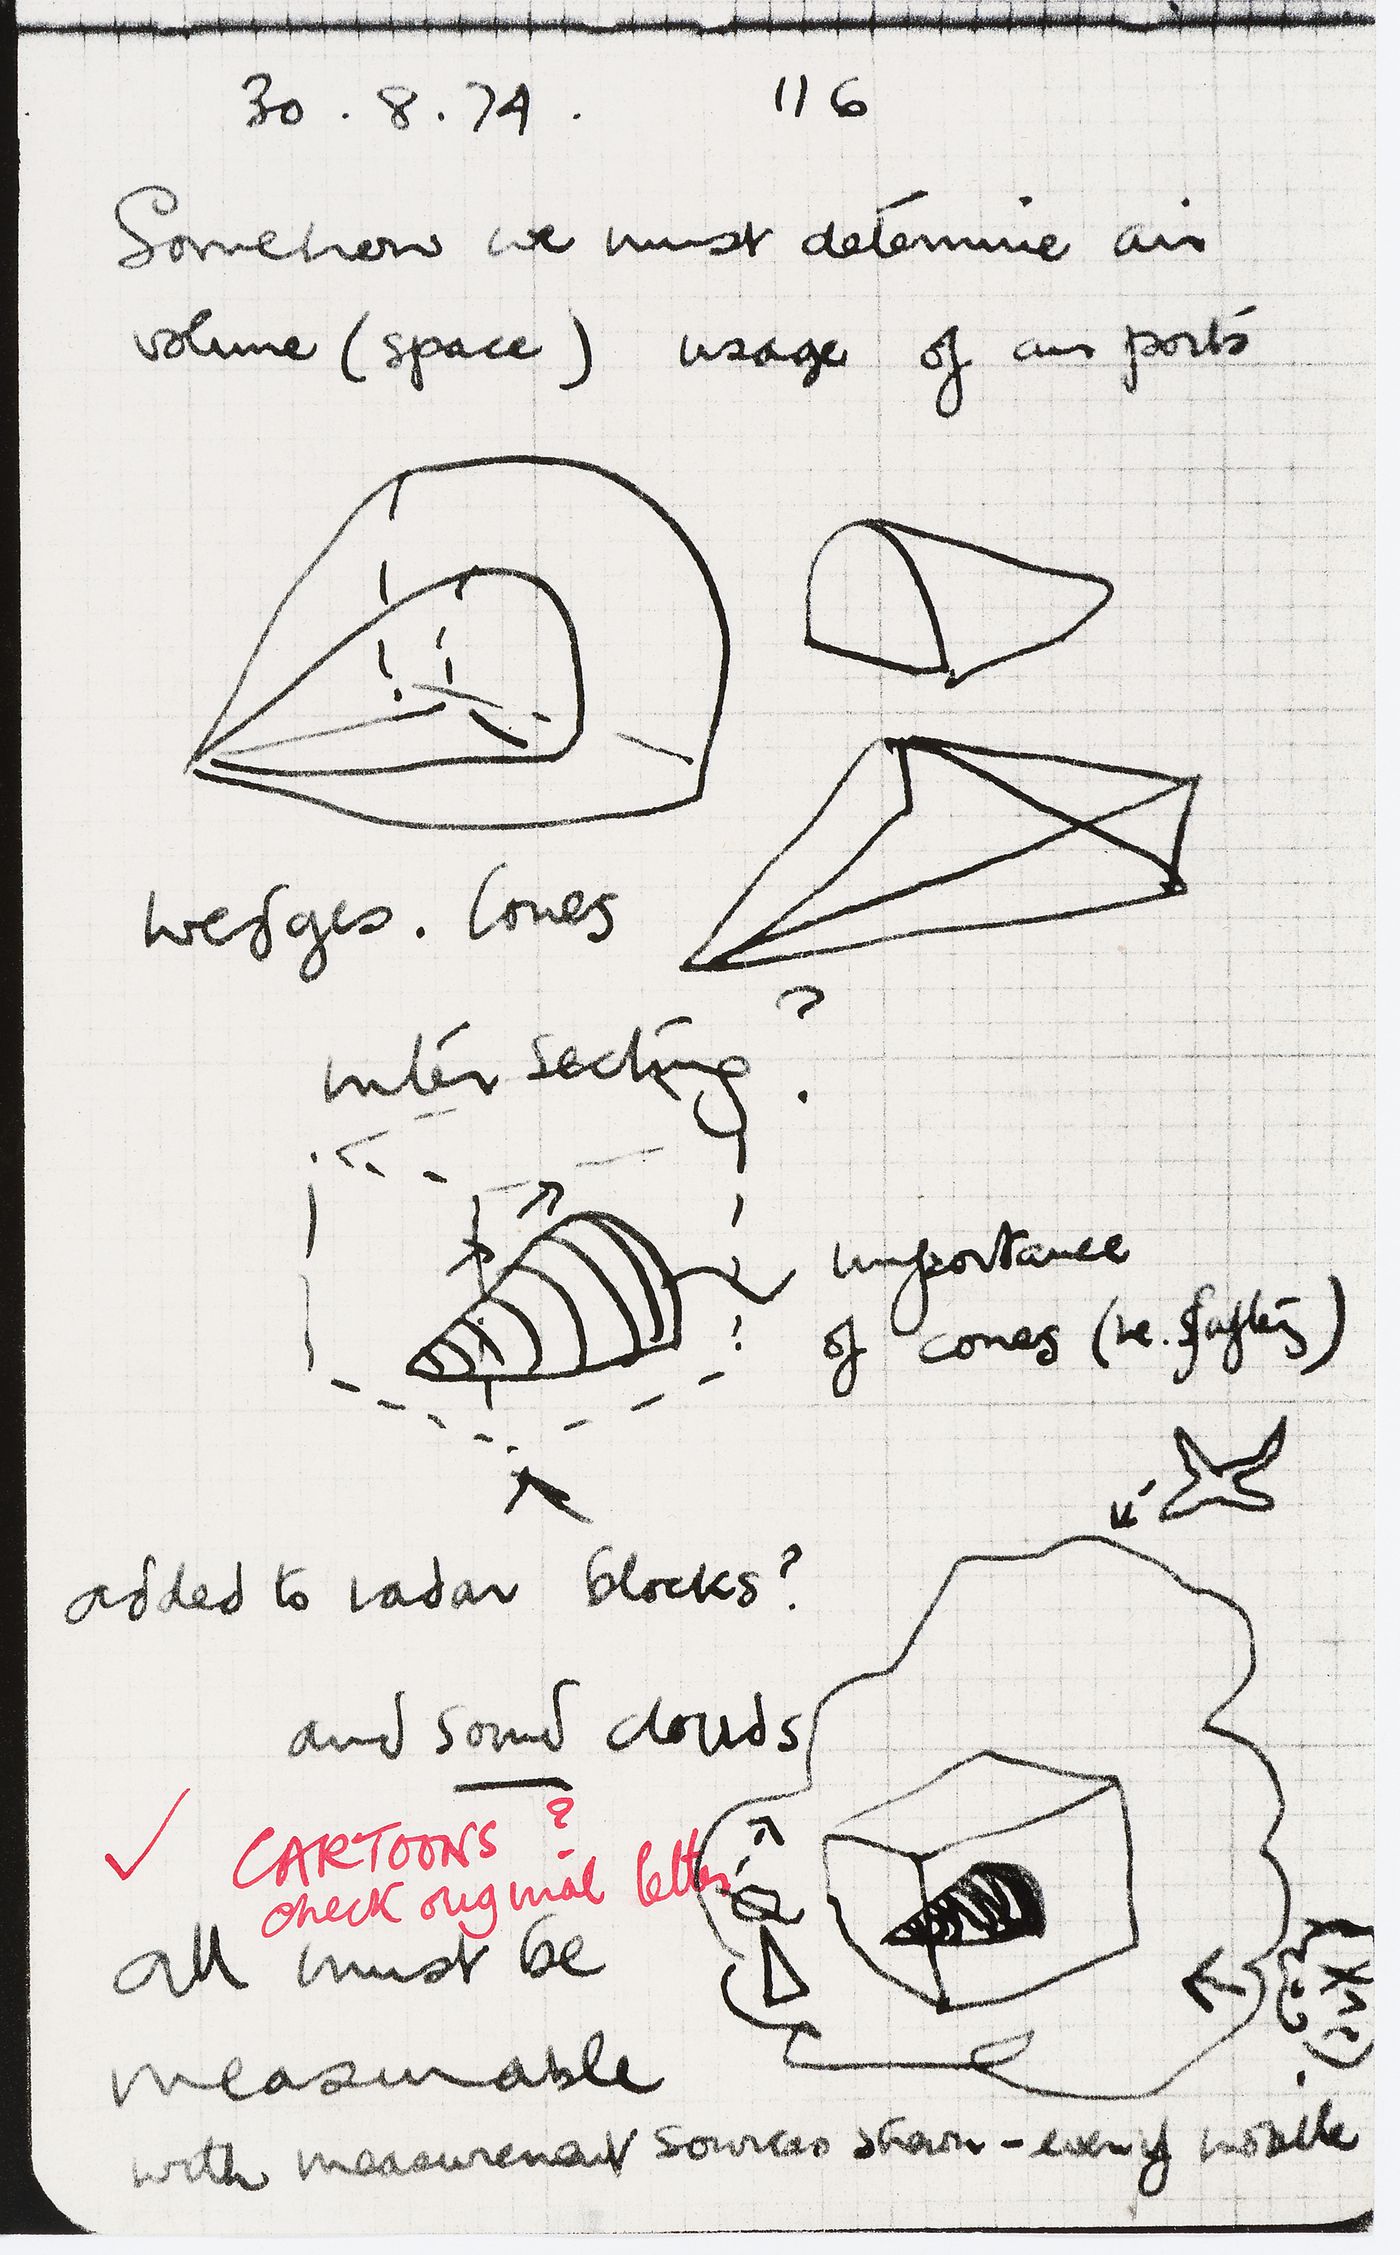 30.8.74. 116
Somehow we must determine air
volume (space) usage of air ports
wedges. Cones
inter secting ?
importance
of cones (re. safety)
added to radar blocks?
and sound clouds
✓ CARTOONS ?
check original letter
all must be
measurable
with measurement sources shown - even if mobile